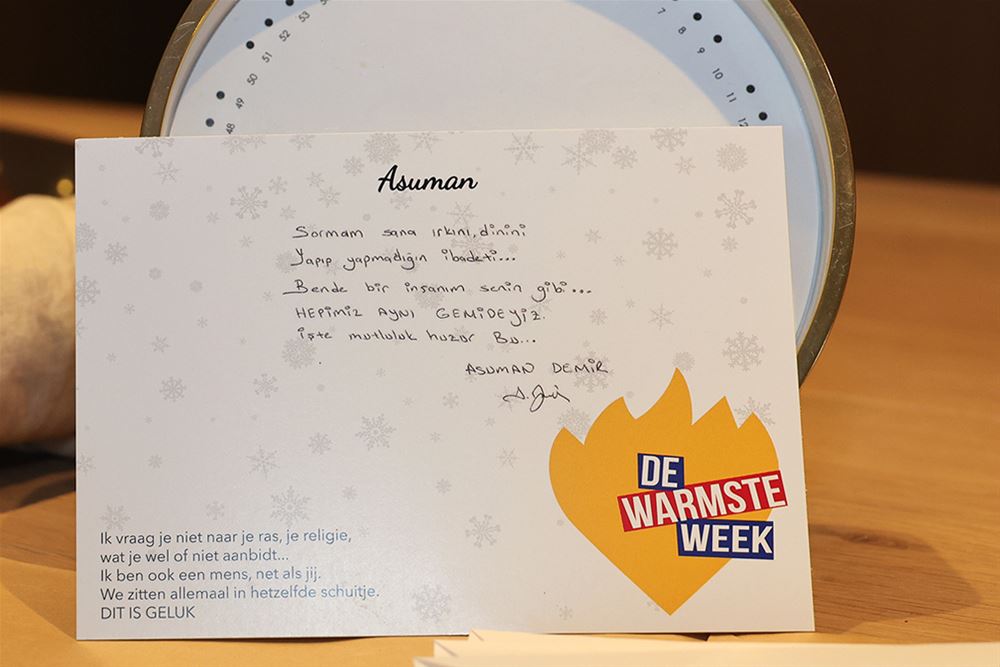 53
52
51
50
49
48
7
8
9
10
11
12
Asuman
Sormam sana ırkını, dinini
Yapıp yapmadığın ibadeti...
Bende bir insanım senin gibi...
HEPİMİZ AYNI GEMİDEYİZ.
işte mutluluk huzur Bu...
ASUMAN DEMİR
DE
WARMSTE
WEEK
Ik vraag je niet naar je ras, je religie,
wat je wel of niet aanbidt...
Ik ben ook een mens, net als jij.
We zitten allemaal in hetzelfde schuitje.
DIT IS GELUK